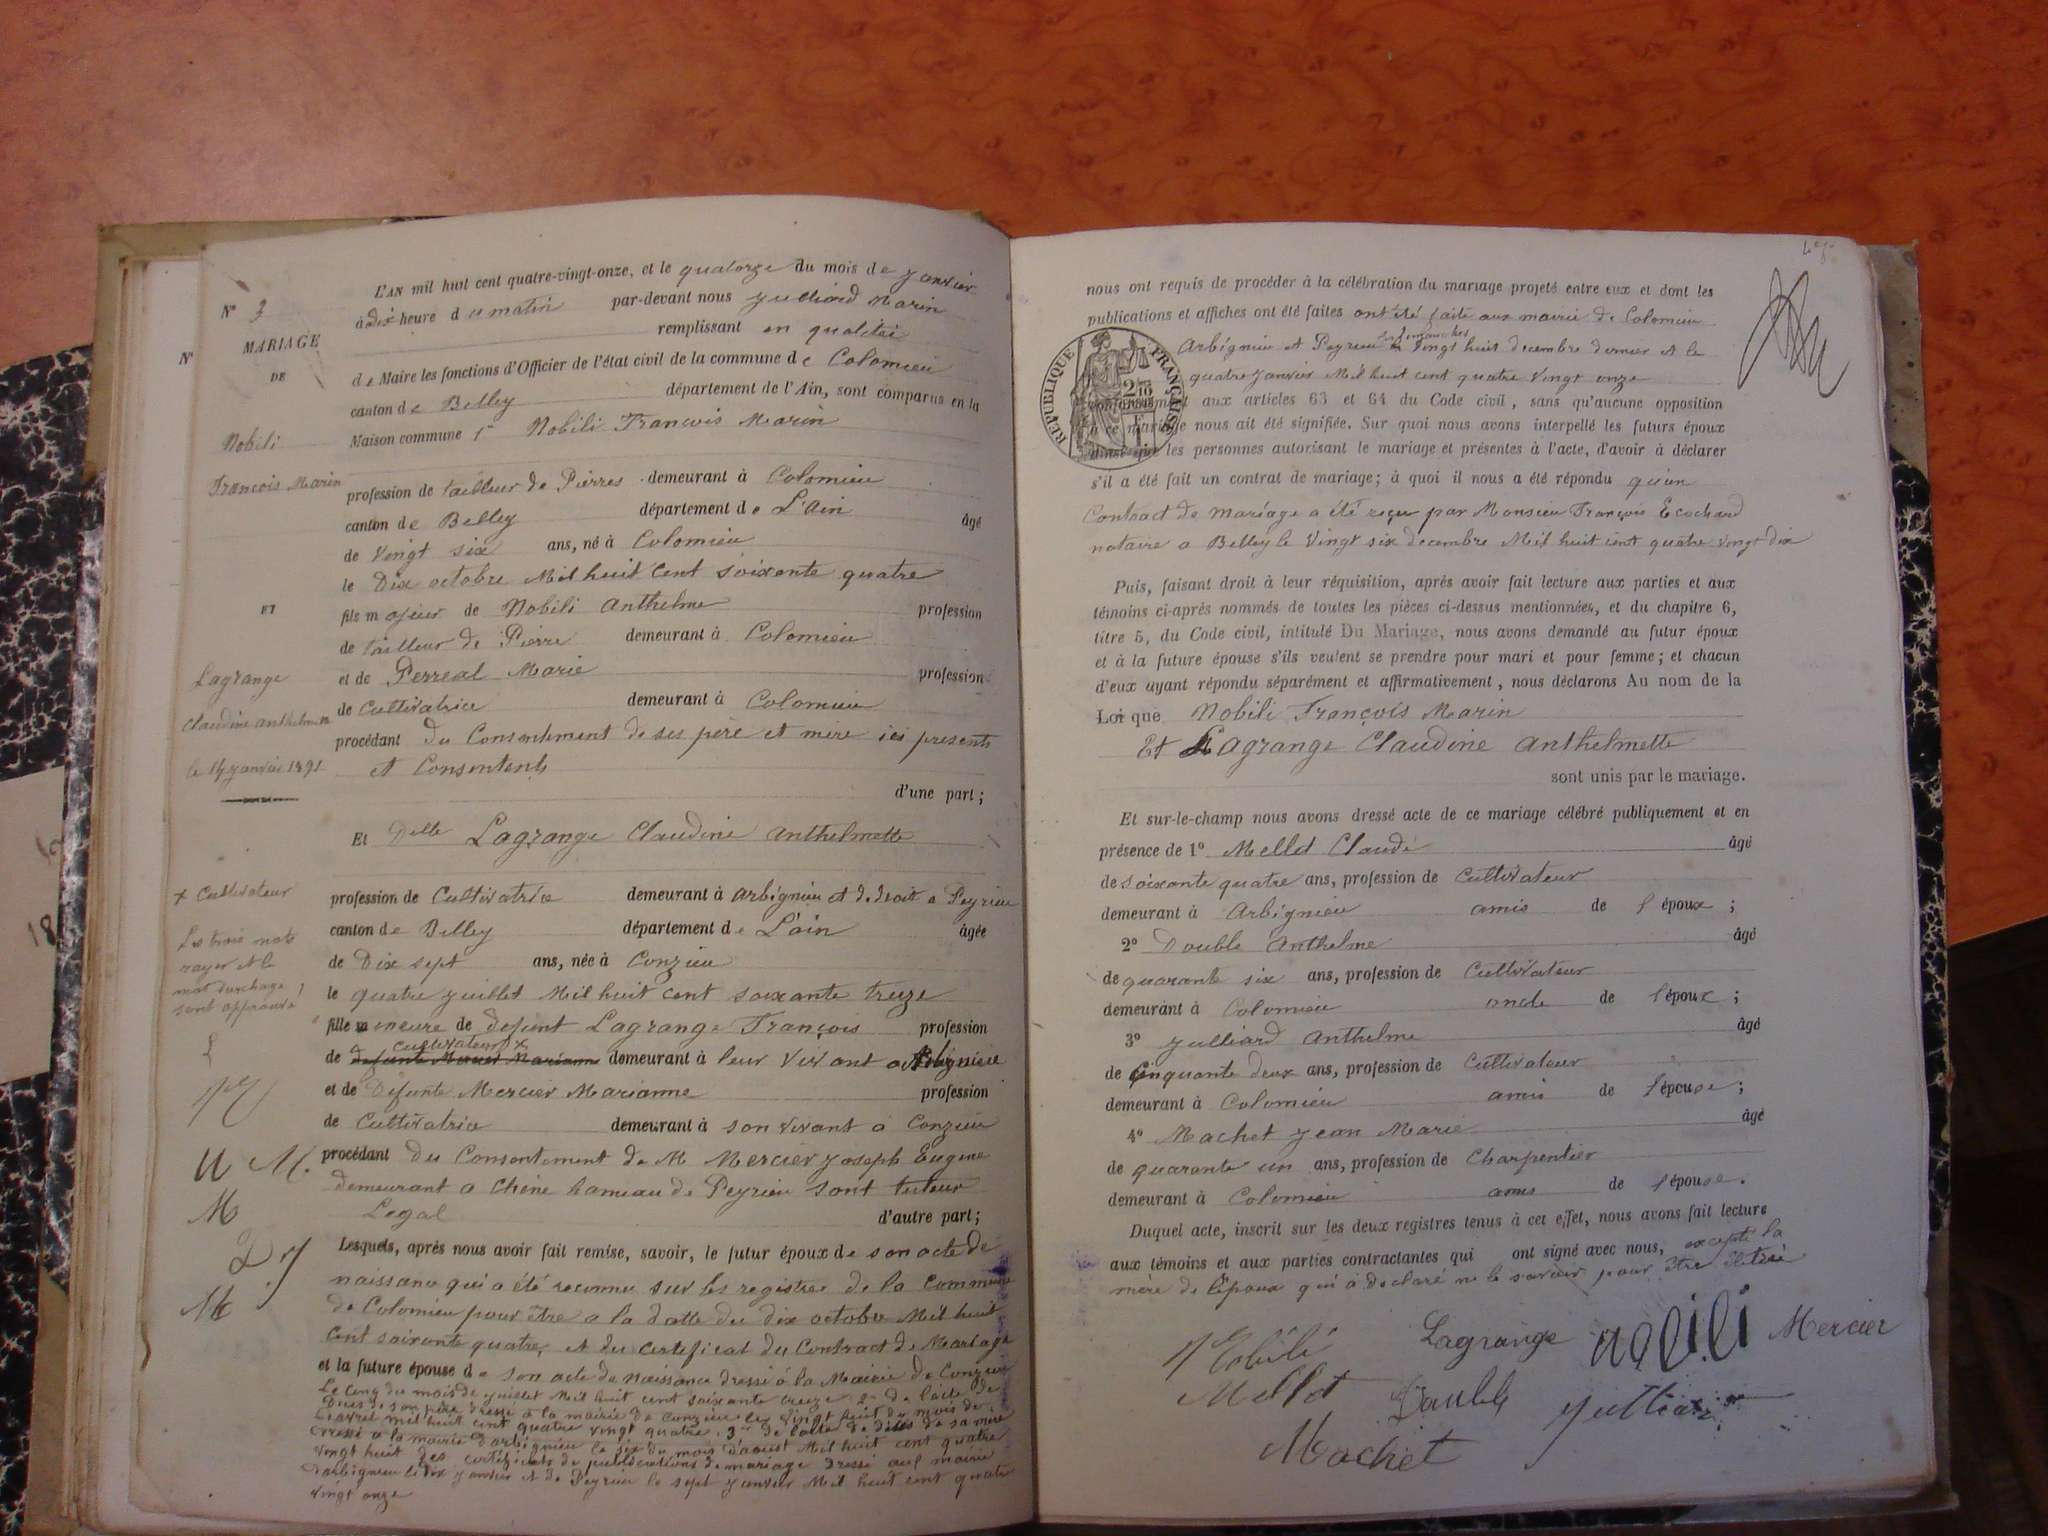 N° 3
MARIAGE
DE
Nobili
François Marin
ET
Lagrange
Claudine anthelmette
le 14 janvier 1891
x Cultivateur
Les trois mots
rayer et le
mot surchage,
sont approuvé
L
U M.
M
D J
M
L'AN mil huit cent quatre-vingt-onze, et le quatorze du mois de janvier
à dix heure du matin par-devant nous Julliard Marin
remplissant en qualitée
de Maire les fonctions d'Officier de l'état civil de la commune de Colomieu
canton de Belley département de l'Ain, sont comparus en la
Maison commune 1° Nobili François Marin
profession de tailleur de Pierres demeurant à Colomieu
canton de Belley département de L'Ain âgé
de Vingt six ans, né à Colomieu
le Dix octobre Mil huit Cent soixante quatre
fils majeur de Nobili Anthelme profession
de tailleur de Pierre demeurant à Colomieu
et de Perreal Marie profession
de Cultivatrice demeurant à Colomieu
procédant du Consentement de ses père et mère ici presents
et Consentents
d'une part;
Et Delle Lagrange Claudine Anthelmette
profession de Cultivatrice demeurant à Arbignieu et de droit a Peyrieu
canton de Belley département de L'ain âgée
de Dix sept ans, née à Conzieu
le quatre juillet Mil huit cent soixante treize
fille mineure de defunt Lagrange François profession
cultivateur x
de defunte Mercier Marianne demeurant à leur vivant a Arbignieu
et de Defunte Mercier Marianne profession
de Cultivatrice demeurant à son vivant à Conzieu
procédant du Consentement de M Mercier Joseph Eugene
demeurant a Chene hameau de Peyrieu sont tuteur
Legal d'autre part;
Lesquels, après nous avoir fait remise, savoir, le futur époux de son acte de
naissance qui a été reconnu sur les registres de la Commune
de Colomieu pour être a la datte du dix octobre Mil huit
Cent soixante quatre, et du certificat du Contract de Mariage
et la future épouse de son acte de naissance dressé à la Mairie de Conzieu
Le Cinq du mois de juillet Mil huit cent soixante treize 2° de l'acte de
Dices de son père dressé à la mairie de Conzieu le vingt huit du mois de
d'avril mil huit cent quatre vingt quatre, 3° de l'acte de décès de sa mère
dressé a la mairie d'arbignieu le six du mois d'aoust Mil huit cent quatre
vingt huit des certificats de publications de mariage dressé aux mairie
d'arbignieu le dix janvier et de Peyrieu le sept janvier Mil huit cent quatre
vingt onze
nous ont requis de procéder à la célébration du mariage projeté entre eux et dont les
publications et affiches ont été faites ont été faite aux mairie de Colomieu
Arbignieu et Peyrieu les dimanches vingt huit decembre dernier et le
quatre janvier Mil huit cent quatre vingt onze
RÉPUBLIQUE FRANÇAISE
conformément aux articles 63 et 64 du Code civil, sans qu'aucune opposition
à ce mariage nous ait été signifiée. Sur quoi nous avons interpellé les futurs époux
ainsi que les personnes autorisant le mariage et présentes à l'acte, d'avoir à déclarer
s'il a été fait un contrat de mariage; à quoi il nous a été répondu qu'un
Contract de mariage a été reçu par Monsieu François Ecochard
notaire a Belley le vingt six decembre Mil huit cent quatre vingt dix
Puis, faisant droit à leur réquisition, après avoir fait lecture aux parties et aux
témoins ci-après nommés de toutes les pièces ci-dessus mentionnées, et du chapitre 6,
titre 5, du Code civil, intitulé Du Mariage, nous avons demandé au futur époux
et à la future épouse s'ils veulent se prendre pour mari et pour femme; et chacun
d'eux ayant répondu séparément et affirmativement, nous déclarons Au nom de la
Loi que Nobili François Marin
Et Lagrange Claudine Anthelmette
sont unis par le mariage.
Et sur-le-champ nous avons dressé acte de ce mariage célébré publiquement et en
présence de 1° Mellot Claude âgé
de soixante quatre ans, profession de Cultivateur
demeurant à Arbignieu amis de l'époux;
2° Double Anthelme âgé
de quarante six ans, profession de Cultivateur
demeurant à Colomieu oncle de l'époux;
3° Julliard Anthelme âgé
de Cinquante deux ans, profession de Cultivateur
demeurant à Colomieu amis de l'épouse;
4° Machet Jean Marie âgé
de quarante un ans, profession de Charpentier
demeurant à Colomieu amis de l'épouse.
Duquel acte, inscrit sur les deux registres tenus à cet effet, nous avons fait lecture
aux témoins et aux parties contractantes qui ont signé avec nous, excepté la
mère de l'époux qui à declaré ne le savoir pour être illetrée
Nobili Lagrange nobili Mercier
Mellot Double Julliard
Machet